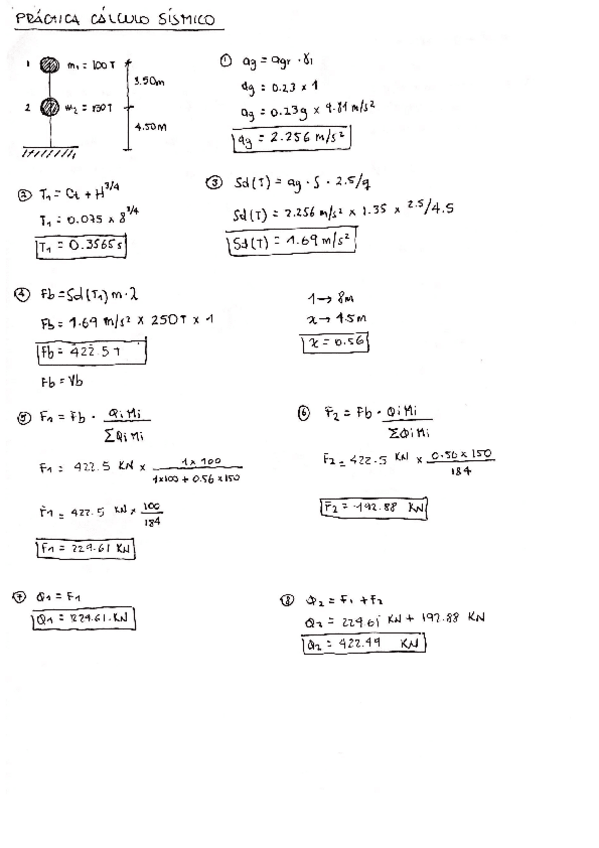 PRÁCTICA CÁLCULO SÍSMICO
1 m₁ = 100T
3.50m
2 m₂ = 150T
4.50M
① ag = agr · γ1
ag = 0.23 × 1
ag = 0.23g × 9.81 m/s²
ag = 2.256 m/s²
② T₁ = Ct + H^3/4
T₁ = 0.075 × 8^3/4
T₁ = 0.3565s
③ Sd(T) = ag · S · 2.5/q
Sd(T) = 2.256 m/s² × 1.35 × 2.5/4.5
Sd(T) = 1.69 m/s²
④ Fb = Sd(T₁) m · λ
Fb = 1.69 m/s² × 250T × 1
Fb = 422.5 T
Fb = Vb
1 → 8m
x → 4.5m
x = 0.56
⑤ F₁ = Fb · QiMi / ΣQiMi
F₁ = 422.5 KN × 1×100 / 1×100 + 0.56×150
F₁ = 422.5 KN × 100/184
F₁ = 229.61 KN
⑥ F₂ = Fb · QiMi / ΣQiMi
F₂ = 422.5 KN × 0.56×150 / 184
F₂ = 192.88 KN
⑦ Q₁ = F₁
Q₁ = 229.61 KN
⑧ Q₂ = F₁ + F₂
Q₂ = 229.61 KN + 192.88 KN
Q₂ = 422.49 KN